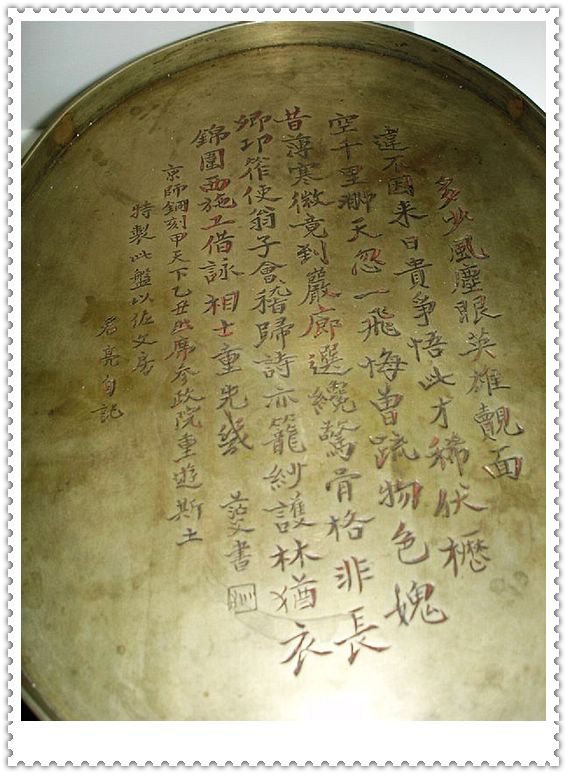 多少風塵眼英雄覿面
違不因来日貴爭悟此才稀伏櫪
空千里翀天忽一飛悔曾疏物色媿
昔薄寒微竟到巖廊選纔驚骨格非長
卿卭筰使翁子會稽歸詩亦籠紗護林猶衣
錦圍西施工借詠相士重先幾 茫父書
京師銅刻甲天下乙丑席参政院重遊斯土
特製此盤以佐文房
亮自記